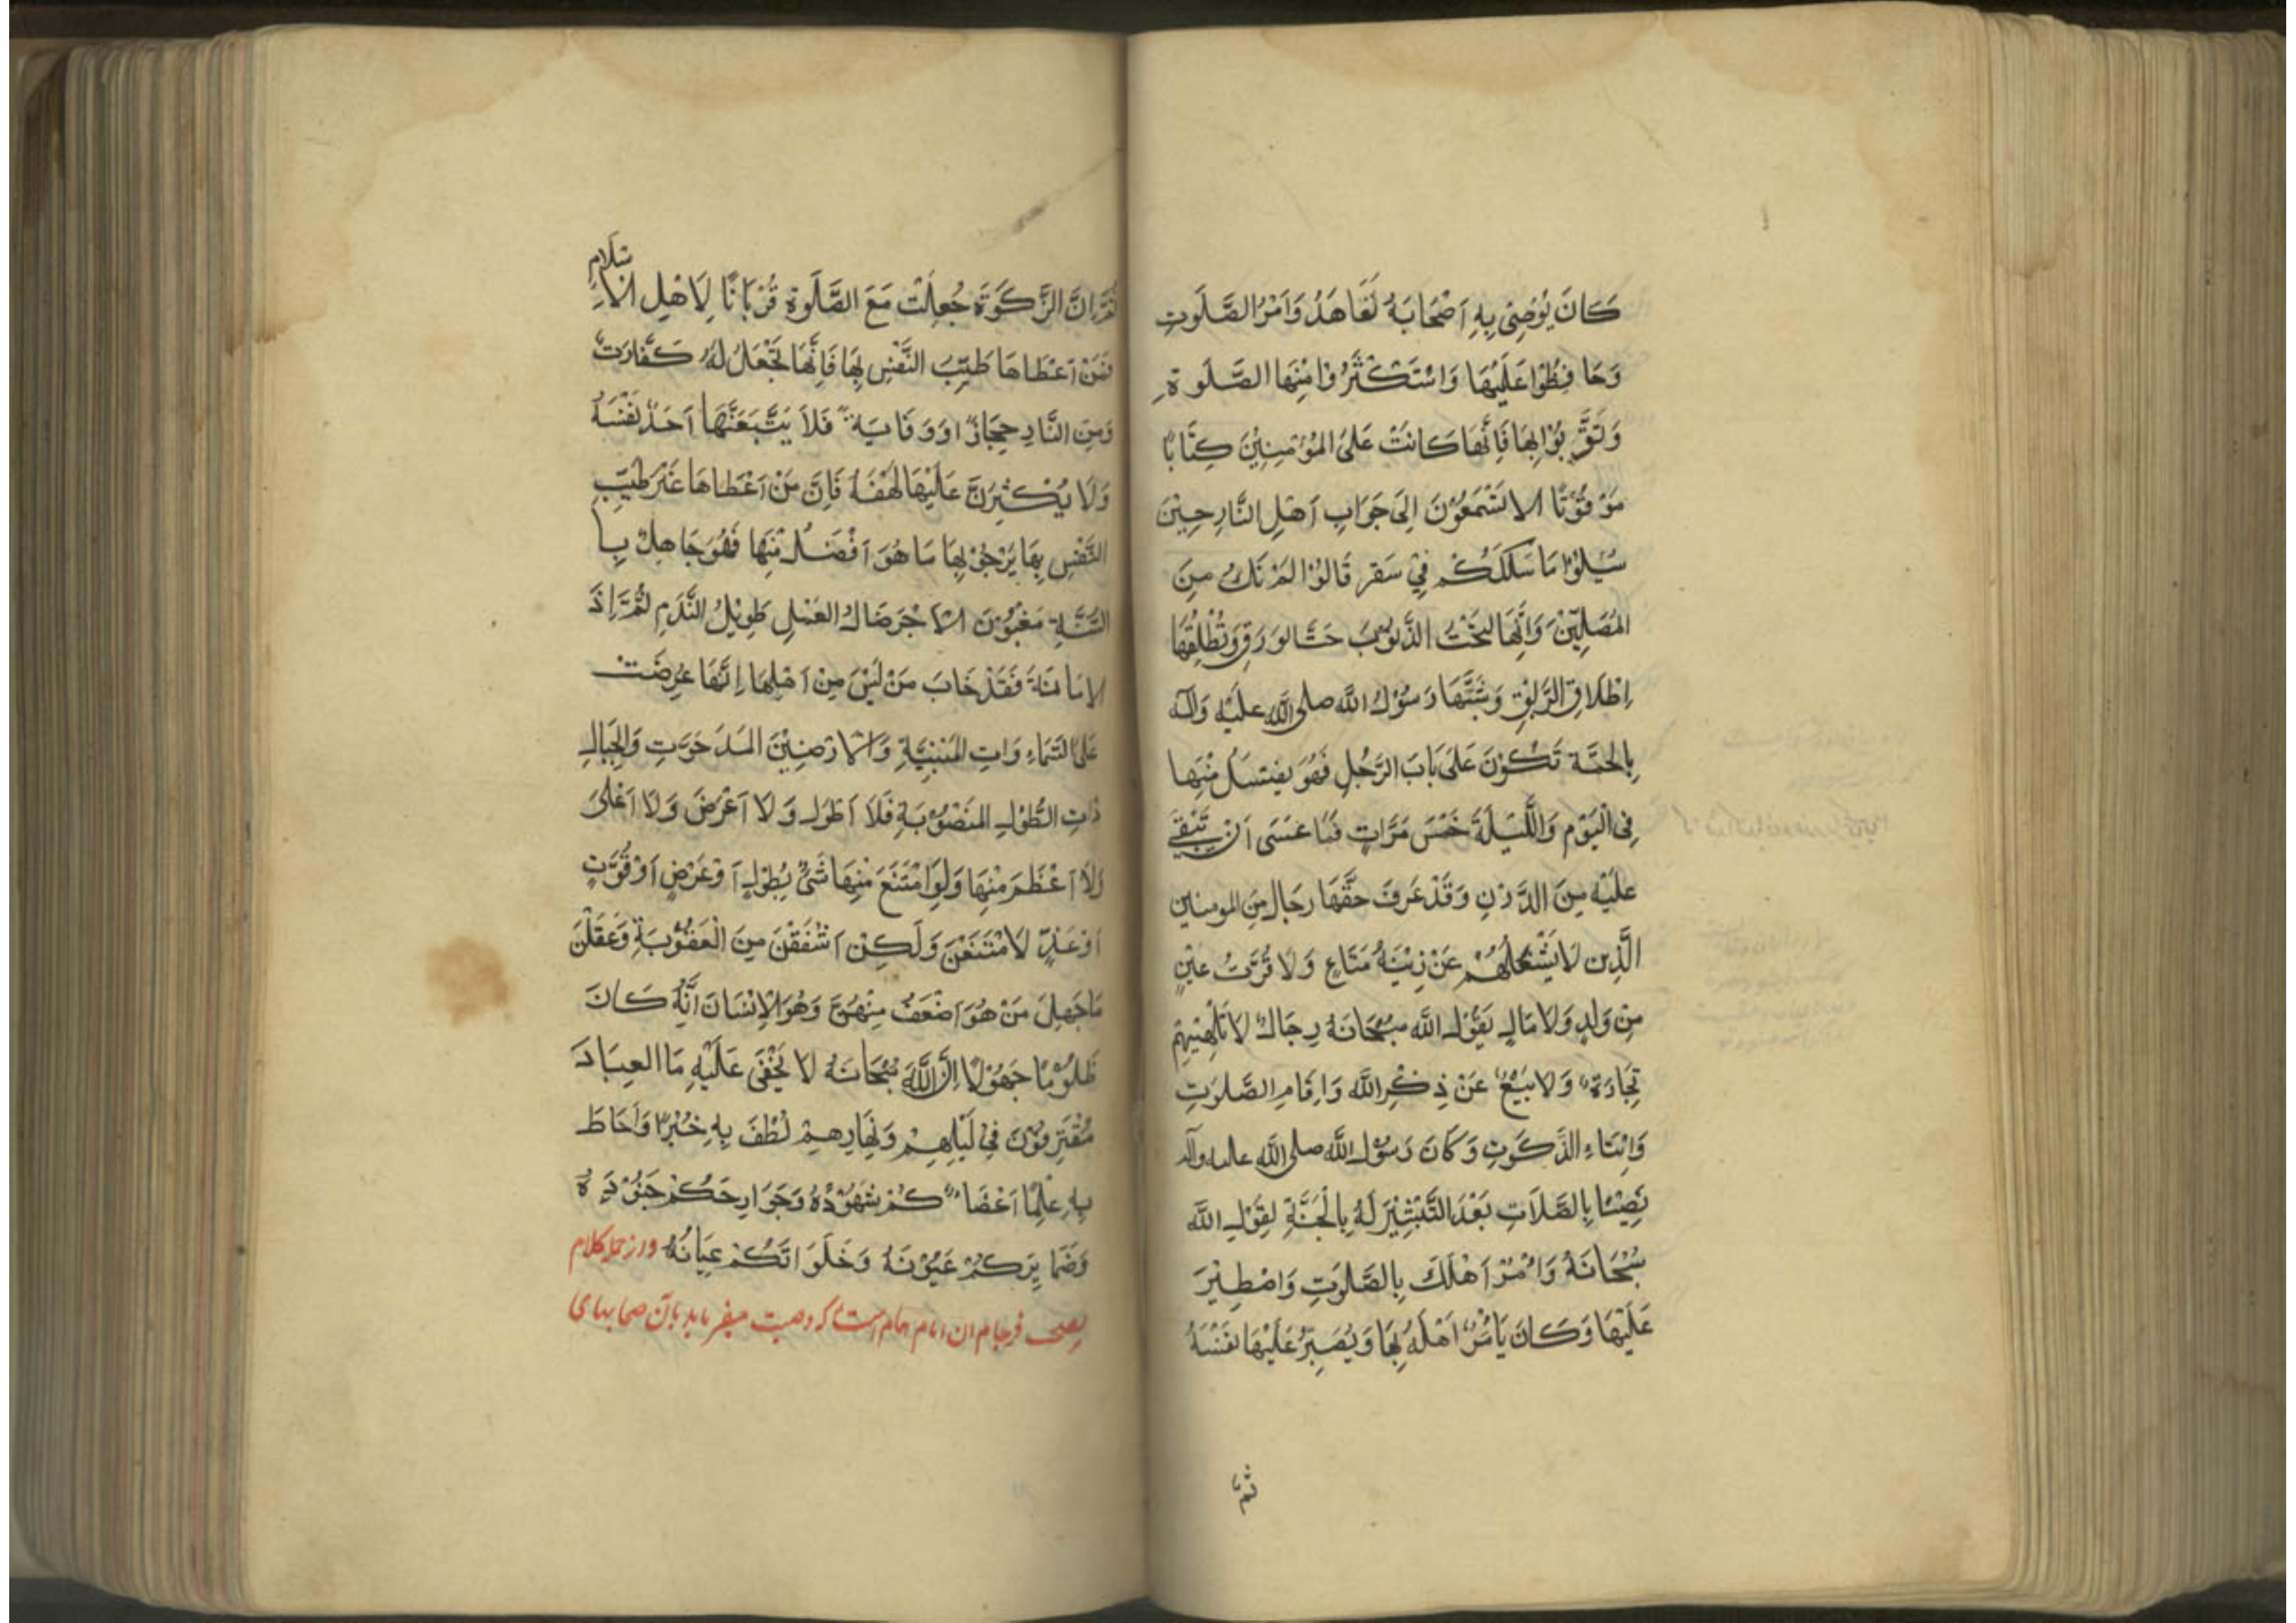 كَانَ يُوْصِىْ بِهِ اَصْحَابَهُ تَعَاهَدُ وَاَمْرُ الصَّلَوتِ
وَحَا فِظُوْا عَلَيْهَا وَاسْتَكْثَرُ وْا مِنْهَا الصَّلَوةِ
وَتَقَّرَبُوْا بِهَا فَاِنَّهَا كَانَتْ عَلىَ المُؤْمِنِيْنَ كِتَا بًا
مَوْقُوْتًا الا تَسْمَعُوْنَ اِلىَ جَوَابِ اَهْلِ النَّارِ حِيْنَ
سُيِلُوْا مَا سَلَكَكُمْ فِيْ سَقَر قَالُوْا لَمْ نَكُ مِنَ
المُصَلِّيْنَ وَاِنَّهَا لتحَتُّ الذَّنوبَ حَتَّ الوَرَقِ وَتُطْلِقُهَا
اِطْلَاقِ الرَّبْقِ وَشَبَّهَا رَسُوْلُ اللَّه صلى اللَّه عَلَيْهِ وَاله
بِالحَمَّةِ تَكُوْنَ عَلىَ بَابَ الرَّجُلِ فَهُوَ يغتسَلُ مِنْهَا
فِى الْيَوْمِ وَالَّليْلَةَ خَمْسَ مَرَّاتٍ فَمَا عَسَى اَنْ يَّبْقےَ
عَلَيْهِ مِنَ الدَّرَنِ وَقَدْ عَرَفَ حَقَّهَا رِجَال مِنَ المومنين
الَّذِين لَا يَشْغَلُهُمْ عَنْ زِيْنَةُ مَتَاعٍ وَلَا قُرَّتُ عَيْنٍ
مِنْ وَلَدٍ وَلَا مَالٍ يَقُوْلُ اللَّه سُبْحَانَهُ رِجَالٌ لَا تُلْهِيْهِمْ
تِجَارَةٌ وَلَا بَيْعٌ عَنْ ذِكْرِ اللَّه وَاِقَامِ الصَّلَوَتِ
وَاِيْتَاءِ الزَّكَوتِ وَكَانَ رَسُوْلُ اللَّه صلى اللَّه عليه وآله
نَصِبًا بِالصَّلَاتِ بَعْدَ التَّبْشِيْرَ لَهُ بِالْجَنَّةِ لِقَوْلِ اللَّه
سُبْحَانَهُ وَاْمُرْ اَهْلَكَ بِالصَّلَوتِ وَاصْطَبِرْ
عَلَيْهَا وَكَانَ يَاْمُرُ اَهْلَهُ بِهَا وَيُصَبِّرُ عَلَيْهَا نَفْسَهُ
ثم
ثُمَّ اِنَّ الزَّكَوَةَ جُعِلَتْ مَعَ الصَّلَوةِ قُرْبَانًا لِاَهْلِ الاِسْلَامِ
فَمَنْ اَعْطَاهَا طَيِّبَ النَّفْسِ بِهَا فَاِنَّهَا تَجْعَلُ لَهُ كَفَّارَتً
وَمِنَ النَّارِ حِجَازً اوَوِقَايَةً فَلَا يَتَّبِعَنَّهَا اَحَدٌ نَفْسَهُ
وَلَا يُكْثِرَنَّ عَلَيْهَا لَهْفَهُ فَاِنَّ مَنْ اَعْطَاهَا غَيْرَ طَيِّبِ
النَّفْسِ بِهَا يَرْجُوْ بِهَا مَا هُوَ اَفْضَلُ مِنْهَا فَهُوَ جَاهِلٌ بِا
لسُّنَّةِ مَغْبُوْنَ الاَجْرَ ضَالُ العَمْلِ طَوِيْلُ النَّدَمِ ثُمَّ اِذَ
الامَانَةَ فَقَدْ خَابَ مَنْ لَيْسَ مِنْ اَهْلِهَا اِنَّهَا عُرِضَتْ
عَلىَ السَّمَاءِ وَاتِ المَبْنِيَّةِ وَالْاَرْضِيْنَ المَدَحُوَّتِ وَالِجبَالِ
ذَاتِ الطُّوْلِ المَنْصُوْبَةِ فَلَا اَطْوَلَ وَلَا اَعْرَضَ وَلَا اَعْلىَ
وَلَا اَعْظَمَ مِنْهَا وَلَوِامْتَنَعَ مِنْهَا شَىْ بُطِوْلٍ اَوْعَرْضٍ اَوْقُوَّتٍ
اَوْعَزٍّ لَامْتَنَعْنَ وَلَكِنْ اَشْفَقْنَ مِنَ الْعَقُوْبَةِ وَعَقَلْنَ
مَا جَهِلَ مَنْ هُوَ اَضْعَفُ مِنْهُنَّ وَهُوَ الْاِنْسَانَ اَنَّهُ كَانَ
ظَلُوْمًا جَهُوْلًا اِنَّ اللَّهَ سُبْحَانَهُ لَا يَخْفَى عَلَيْهِ مَا العِبَادَ
مُقْتَرِفُوْنَ فِيْ لَيْلِهِمْ وَنَهَارِهِمْ لَطُفَ بِهِ خُبْرًا وَاَحَاطَ
بِهِ عِلْمًا اَعْضَاءُكُمْ شُهُوْدُهُ وَجَوَارِحَكُمْ جُنُوْدَهُ
وَضَمَايِرَكُمْ عَيُوْنَهُ وَخَلَوَاتَكُمْ عِيَانُهُ ورز جمله كلام
فرجام ان امام همام است كه وصيت ميفرمايد بآن صحابهاى